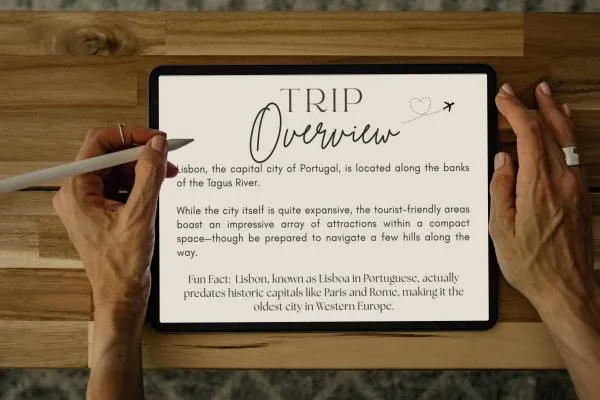 TRIP
Overview
Lisbon, the capital city of Portugal, is located along the banks
of the Tagus River.
While the city itself is quite expansive, the tourist-friendly areas
boast an impressive array of attractions within a compact
space—though be prepared to navigate a few hills along the
way.
Fun Fact: Lisbon, known as Lisboa in Portuguese, actually
predates historic capitals like Paris and Rome, making it the
oldest city in Western Europe.